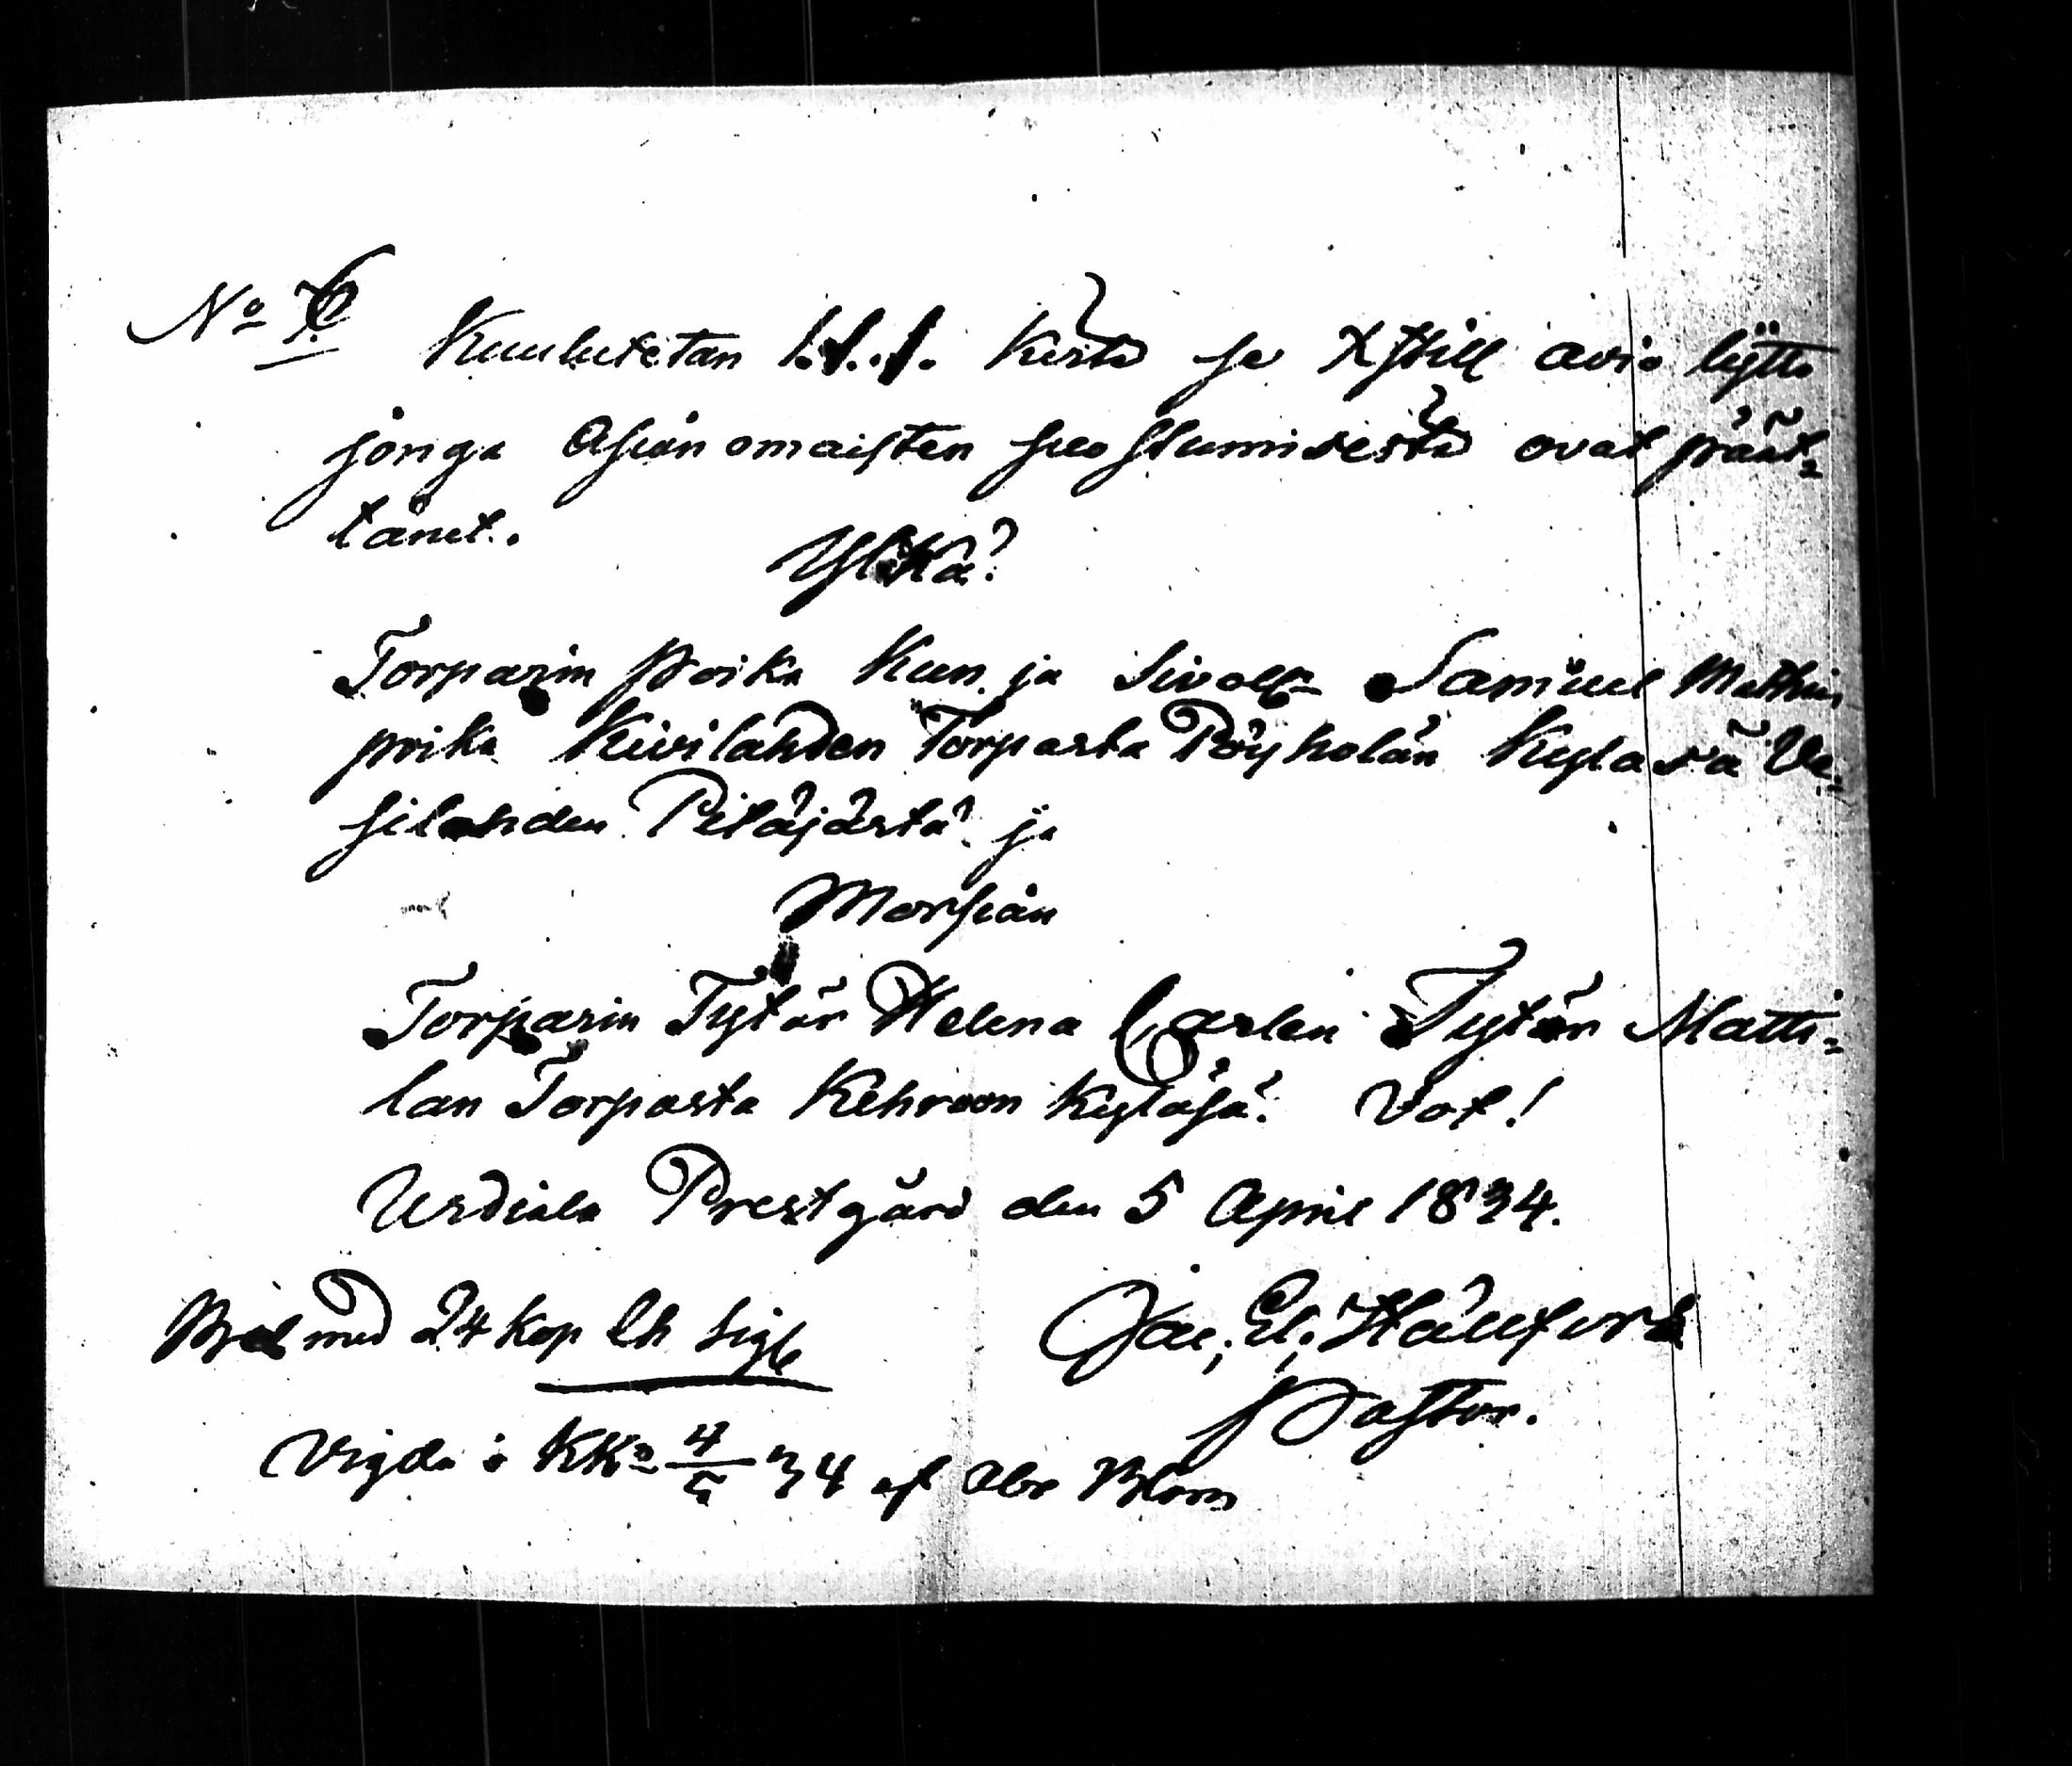 No 6 Kuulutetan 1.1.1. Kerta se Xstill avio lijtto
jonga Asianomaisten suostumisesta ovat päät=
tänet.
Ylkä?
Torparin poika Kun. ja Sivoll. Samuel Mathin
poika Kivilahden Torpasta Pöyholän Kylasä Ve=
silahden Pitäjästä ja
Morsian
Torparin Tytär Helena Carlen Tytär Matti=
lan Torpasta Kehroon Kyläsä. Vot!
Urdiala Prestgård den 5 April 1834.
med 24 kop Ch Sigb
Jac; El; Häufvors
Pastor.
Vigda i KKa 4/5 34 af Abr Blom